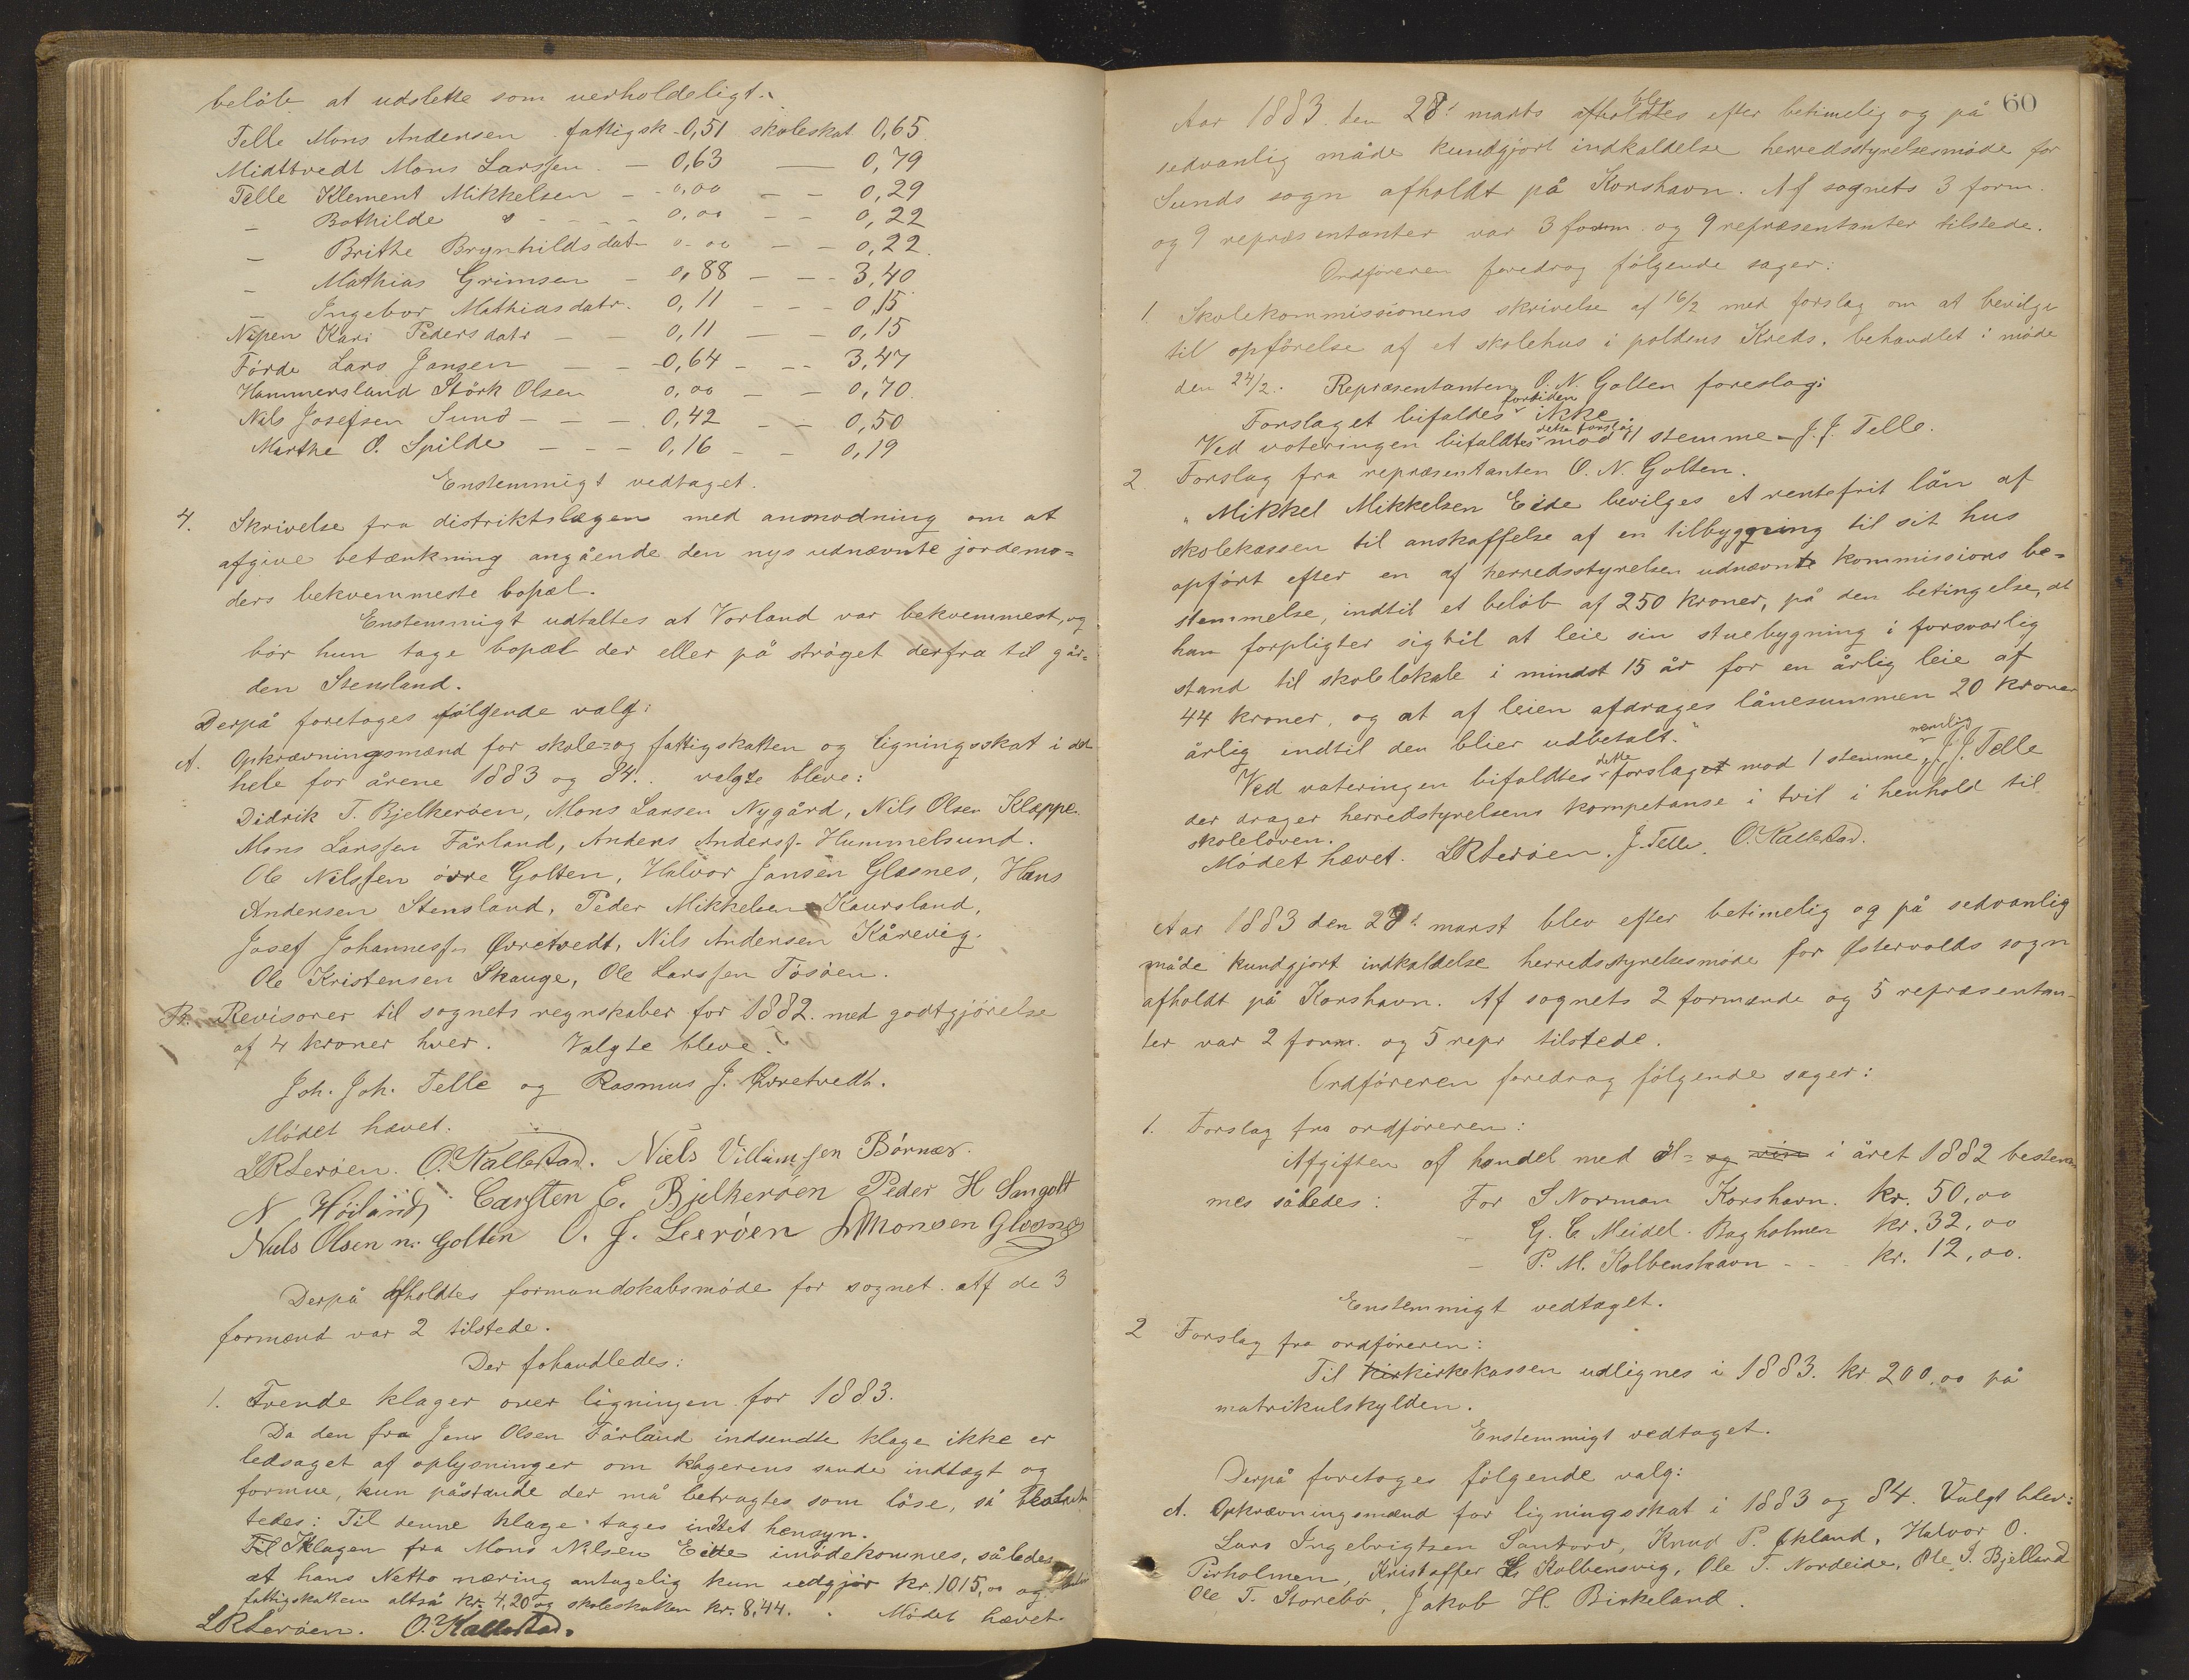 beløb at udslette som uerholdeligt.
Telle Mons Andersen fattigsk - 0,51 skoleskat 0,65
Midttvedt Mons Larssen - 0,63 - 0,79
Telle Klement Mikkelsen - - 0,00 - - 0,29
- Bothilde " - - - - 0,00 - - 0,22
- Brithe Brynhildsdatr 0,00 - - 0,22
- Mathias Grimsen - 0,88 - - - 3,40
- Ingebor Mathiasdatr. 0,11 - - - 0,15
Nipen Kari Pedersdatr - - 0,11 - - 0,15
Førde Lars Jansen - - 0,64 - - - 3,47
Hammersland Størk Olsen 0,00 - - 0,70
Nils Josefsen Sund - - - 0,42 - - 0,50
Marthe O. Spilde - - - 0,16 - - 0,19
Enstemmigt vedtaget.
4. Skrivelse fra distriktslægen med anmodning om at
afgive betænkning angående den nys udnævnte jordemo=
ders bekvemmeste bopæl.
Enstemmigt udtaltes at Vorland var bekvemmest, og
bør hun tage bopæl der eller på strøget derfra til går=
den Stensland.
Derpå foretoges følgende valg:
A. Opkrævningsmænd for skole- og fattigskatten og ligningsskat i det
hele for årene 1883 og 84. valgte bleve:
Didrik T. Bjelkerøen, Mons Larsen Nygård, Nils Olsen Kleppe.
Mons Larssen Fårland, Anders Anderss. Hummelsund.
Ole Nilssen øvre Golten, Halvor Jansen Glesnes, Hans
Andersen Stensland, Peder Mikkelsen Kaursland,
Josef Johannessen Øvretvedt, Nils Andersen Kårevig.
Ole Kristensen Skauge, Ole Larssen Tøsøen.
B. Revisorer til sognets regnskaber for 1882. med godtgjørelse
af 4 kroner hver. Valgte bleve:
Joh. Joh. Telle og Rasmus J. Øvretvedt.
Mødet hævet.
LRLerøen. O. Kallestad. Niels Villumsen Børnes.
N Høiland Carsten E. Bjelkerøen Peder H Sangolt
Niels Olsen n. Golten O. J. Leerøen Monsen Glesnes
Derpå afholdtes formandskabsmøde for sognet. Af de 3
formænd var 2 tilstede.
Der fohandledes:
1. Trende klager over ligningen for 1883.
Da den fra Jens Olsen Fårland indsendte klage ikke er
ledsaget af oplysninger om klagerens sande indtægt og
formue, kun påstande der må betragtes som løse, så beslut
tedes: Til denne klage tages intet hensyn.
Til Klagen fra Mons Nilsen Eide imødekommes, således
at hans Netto næring antagelig kun udgjør kr. 1015,00 og
fattigskatten altså kr. 4,20 og skoleskatten kr. 8,44. Mødet hævet.
LRLerøen. O. Kallestad.
60
Aar 1883 den 28' marts blev afholdtes efter betimelig og på
sedvanlig måde kundgjort indkaldelse herredsstyrelsesmøde for
Sunds sogn afholdt på Korshavn. Af sognets 3 form.
og 9 repræsentanter var 3 form. og 9 repræsentanter tilstede.
Ordføreren foredrog følgende sager:
1 Skolekommissionens skrivelse af 16/2 med forslag om at bevilge
til opførelse af et skolehus i poldens Kreds, behandlet i møde
den 24/2. Repræsentanten O. N. Golten foreslog:
Forslaget bifaldes fortiden ikke
Ved voteringen bifaldtes dette forslag mod 1 stemme - J. J. Telle.
2. Forslag fra repræsentanten O. N. Golten.
"Mikkel Mikkelsen Eide bevilges et rentefrit lån af
skolekassen til anskaffelse af en tilbygning til sit hus
opført efter en af herredsstyrelsen udnævnte kommissions be=
stemmelse, indtil et beløb af 250 kroner, på den betingelse, at
han forpligter sig til at leie sin stuebygning i forsvarlig
stand til skolelokale i mindst 15 år for en årlig leie af
44 kroner, og at af leien afdrages lånesummen 20 kroner
årlig indtil den blier udbetalt."
Ved voteringen bifaldtes dette forslaget mod 1 stemme, nemlig J. J. Telle
der drager herredstyrelsens kompetanse i tvil i henhold til
skoleloven.
Mødet hævet. LRLerøen. J. Telle. O. Kallestad.
Aar 1883 den 28' marst blev efter betimelig og på sedvanlig
måde kundgjort indkaldelse herredsstyrelsesmøde for Østervolds sogn
afholdt på Korshavn. Af sognets 2 formænde og 5 repræsentan-
ter var 2 form. og 5 repr tilstede.
Ordføreren foredrog følgende sager:
1. Forslag fra ordføreren:
Afgiften af handel med øl= og vin i året 1882 bestem
mes således: For S Norman Korshavn. kr. 50,00
- G. C. Meidel. Bagholmen kr. 32,00
- P. M. Kolbenshavn - - kr. 12,00.
Enstemmigt vedtaget.
2 Forslag fra ordføreren:
Til kirkirkekassen udlignes i 1883. kr 200,00 på
matrikulskylden.
Enstemmigt vedtaget.
Derpå foretoges følgende valg:
A. Opkrævningsmænd for ligningsskat i 1883 og 84. Valgt blev:
Lars Ingebrigtsen Santorv, Knud P. Økland, Halvor O.
Pirholmen, Kristoffer Kolbensvig, Ole T. Nordeide, Ole I. Bjelland
Ole T. Storebø, Jakob H. Birkeland.